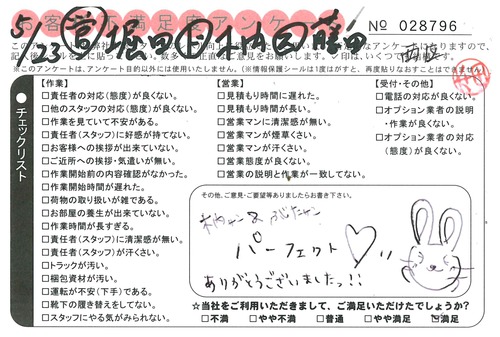 5/23 営 堀田 作 回 藤田
お客様満足度アンケート
№ 028796
西脇
※このアンケートは、アンケート目的以外には使用いたしません。(※情報保護シールは1度はがすと、再度貼りなおすことはできません)
●チェックリスト
【作業】
□責任者の対応(態度)が良くない。
□他のスタッフの対応(態度)が良くない。
□作業を見ていて不安がある。
□責任者(スタッフ)に好感が持てない。
□お客様への挨拶が出来ていない。
□ご近所への挨拶・気遣いが無い。
□作業開始前の内容確認がなかった。
□作業開始時間が遅れた。
□荷物の取り扱いが雑である。
□お部屋の養生が出来ていない。
□作業時間が長すぎる。
□責任者(スタッフ)に清潔感が無い。
□責任者(スタッフ)が汗くさい。
□トラックが汚い。
□梱包資材が汚い。
□運転が不安(下手)である。
□靴下の履き替えをしてない。
□スタッフにやる気がみられない。
【営業】
□見積もり時間に遅れた。
□見積もり時間が長い。
□営業マンに清潔感が無い。
□営業マンが煙草くさい。
□営業マンが汗くさい。
□営業態度が良くない。
□営業の説明と作業が一致してない。
【受付・その他】
□電話の対応が良くない。
□オプション業者の説明・作業が良くない。
□オプション業者の対応(態度)が良くない。
その他、ご意見・ご要望等ありましたらお書き下さい。
パーフェクト♡
ありがとうございましたっ!!
☆当社をご利用いただきまして、ご満足いただけたでしょうか?
□不満 □やや不満 □普通 □やや満足 ☑満足